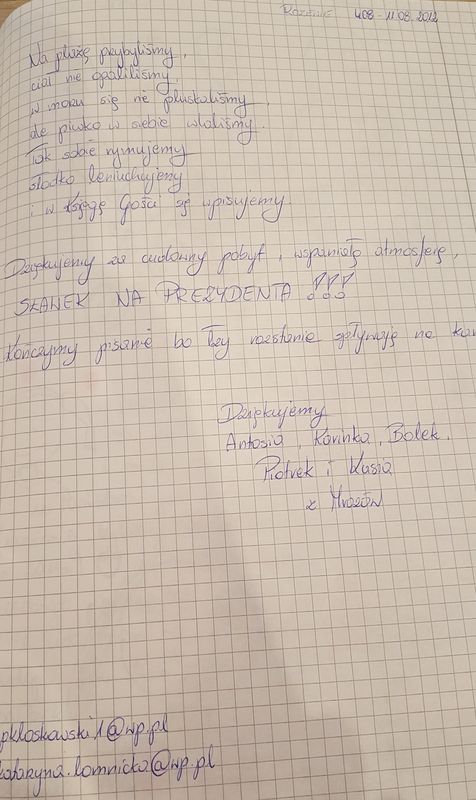 408 - 11.08.2012
Na plażę przybyliśmy,
ciał nie opaliliśmy,
w morzu się nie pluskaliśmy,
ale piwko w siebie wlaliśmy.
Tak sobie rymujemy
słodko leniuchujemy
i w Księgę Gości się wpisujemy.
Dziękujemy za cudowny pobyt, wspaniałą atmosferę,
SŁAWEK NA PREZYDENTA !!!
Kończymy pisanie bo łzy rozstania spływają na
Dziękujemy
Antosia, Karinka, Bolek,
Piotrek i Kasia
z Mrozów
pkloskowski1@wp.pl
kataryna.lomnicka@wp.pl